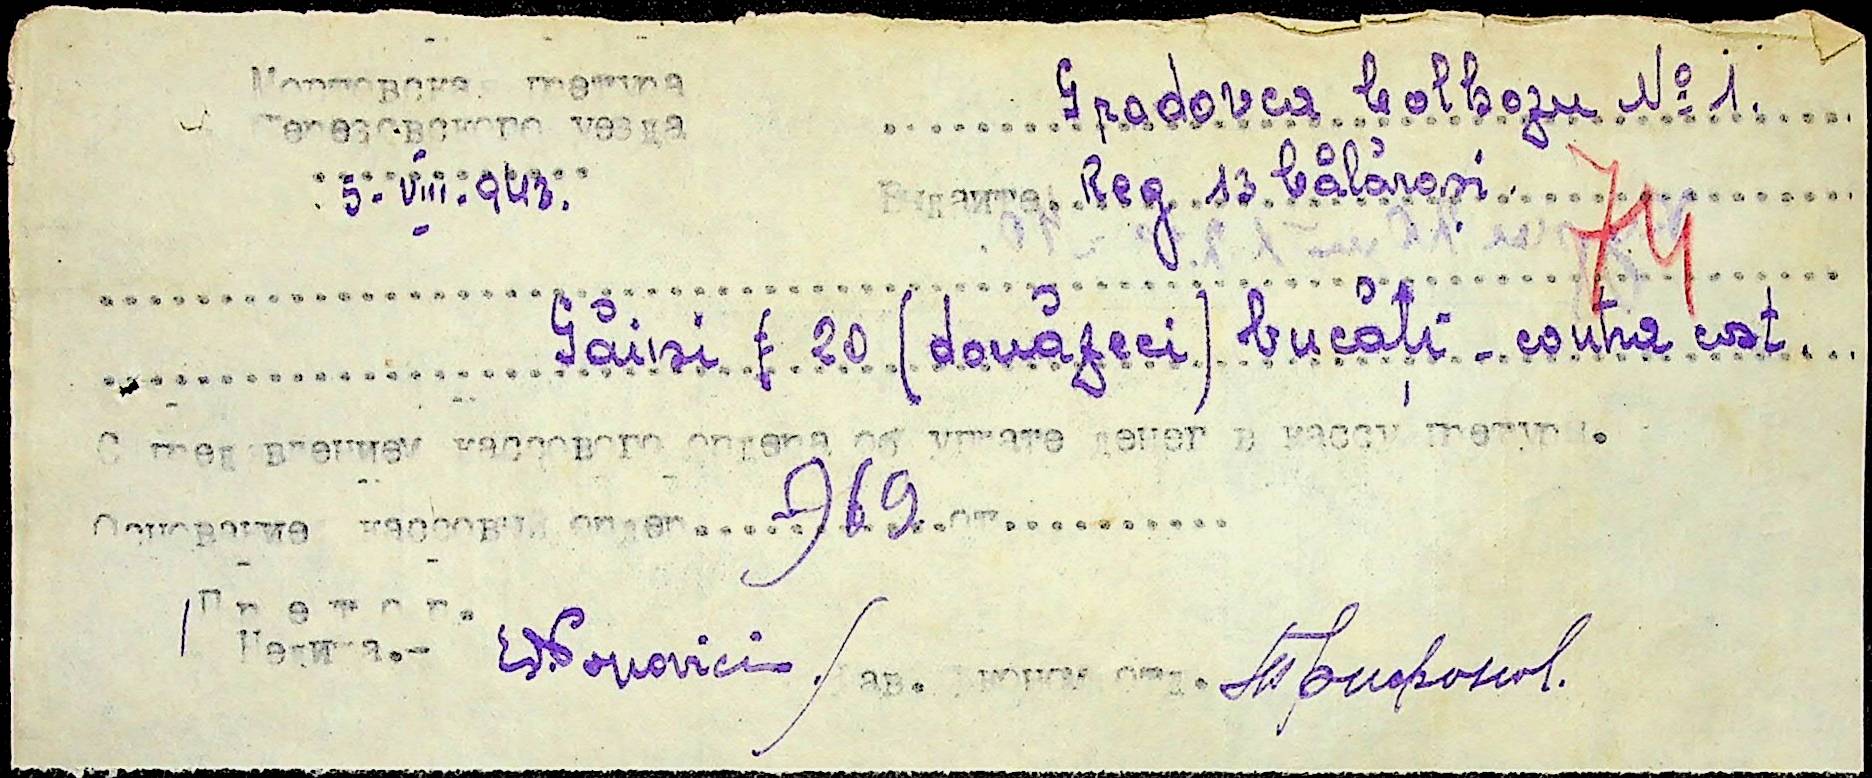 Мостовская претура
Березовского уезда
5-VIII-943.
Gradovca Colhozu No 1.
Выдайте Reg 13 Călărași.
74
Găini 20 (douăzeci) bucăți - contra cost.
С пред'влением кассового ордера об уплате денег в кассу претуры.
Основание кассовый ордер 969 от
Претор.
Печать.-
Popovici
Зав. эконом отд. Трифонов.